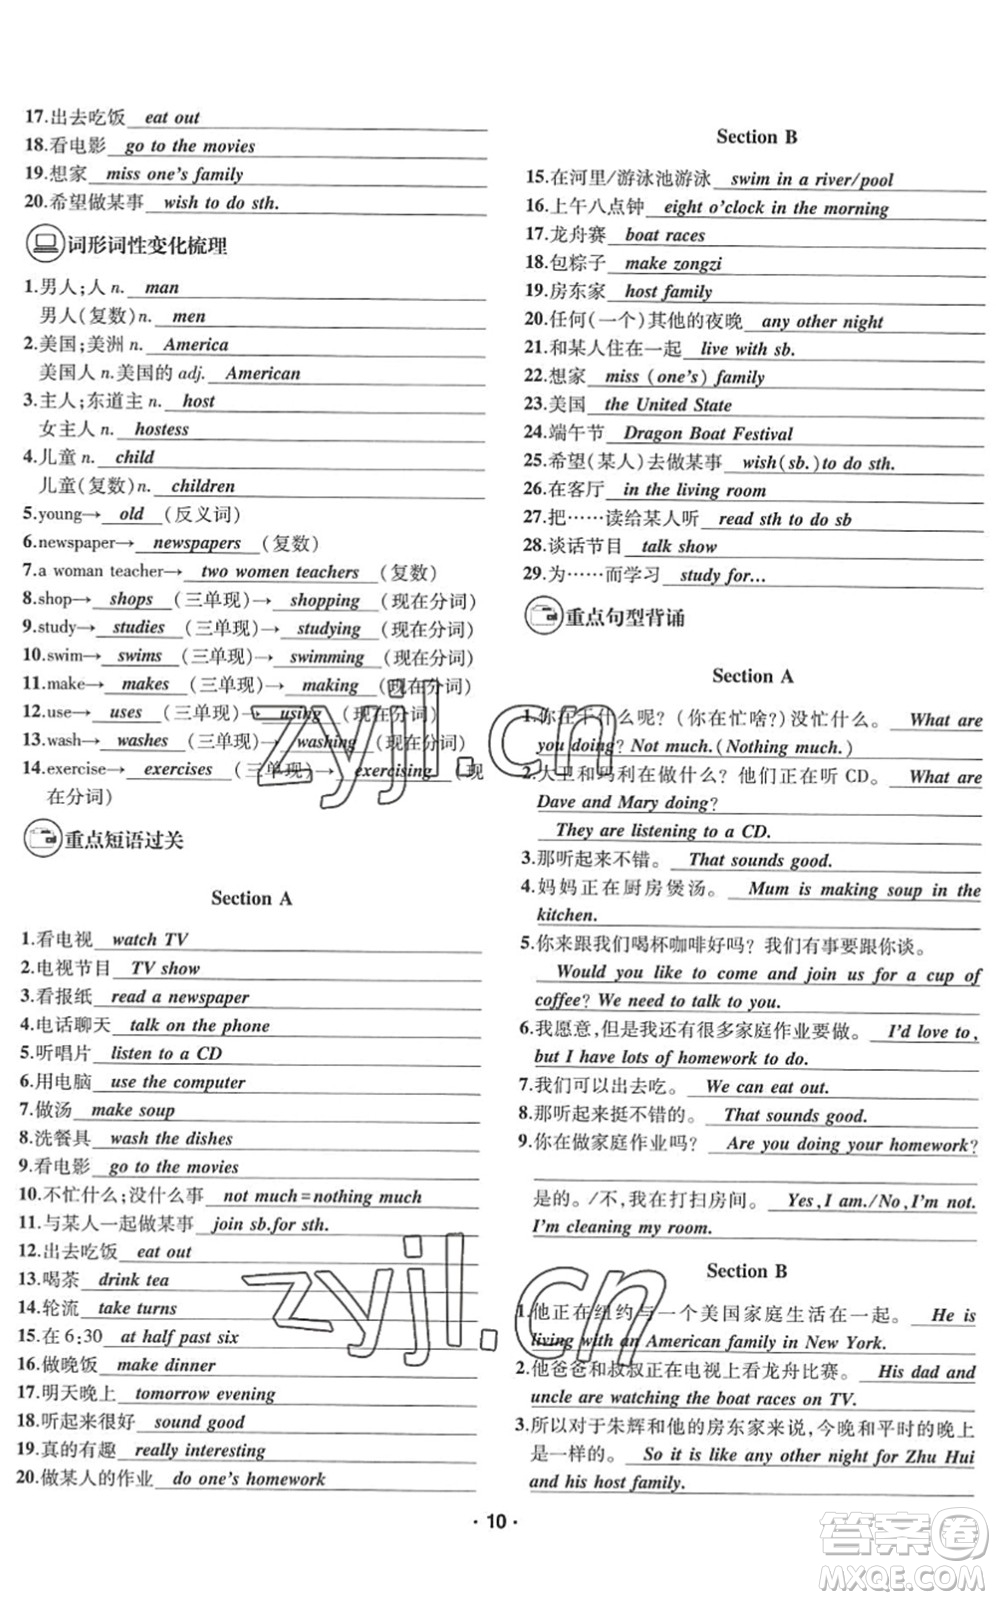 17.出去吃饭 eat out
18.看电影 go to the movies
19.想家 miss one's family
20.希望做某事 wish to do sth.
词形词性变化梳理
1.男人;人 n. man
男人(复数)n. men
2.美国;美洲 n. America
美国人 n.美国的 adj. American
3.主人;东道主 n. host
女主人 n. hostess
4.儿童 n. child
儿童(复数)n. children
5.young→ old (反义词)
6.newspaper→ newspapers (复数)
7.a woman teacher→ two women teachers (复数)
8.shop→ shops (三单现)→ shopping (现在分词)
9.study→ studies (三单现)→ studying (现在分词)
10.swim→ swims (三单现)→ swimming (现在分词)
11.make→ makes (三单现)→ making (现在分词)
12.use→ uses (三单现)→ using (现在分词)
13.wash→ washes (三单现)→ washing (现在分词)
14.exercise→ exercises (三单现)→ exercising (现
在分词)
重点短语过关
Section A
1.看电视 watch TV
2.电视节目 TV show
3.看报纸 read a newspaper
4.电话聊天 talk on the phone
5.听唱片 listen to a CD
6.用电脑 use the computer
7.做汤 make soup
8.洗餐具 wash the dishes
9.看电影 go to the movies
10.不忙什么;没什么事 not much=nothing much
11.与某人一起做某事 join sb.for sth.
12.出去吃饭 eat out
13.喝茶 drink tea
14.轮流 take turns
15.在 6:30 at half past six
16.做晚饭 make dinner
17.明天晚上 tomorrow evening
18.听起来很好 sound good
19.真的有趣 really interesting
20.做某人的作业 do one's homework
Section B
15.在河里/游泳池游泳 swim in a river/pool
16.上午八点钟 eight o'clock in the morning
17.龙舟赛 boat races
18.包粽子 make zongzi
19.房东家 host family
20.任何(一个)其他的夜晚 any other night
21.和某人住在一起 live with sb.
22.想家 miss (one's) family
23.美国 the United State
24.端午节 Dragon Boat Festival
25.希望(某人)去做某事 wish(sb.)to do sth.
26.在客厅 in the living room
27.把……读给某人听 read sth to do sb
28.谈话节目 talk show
29.为……而学习 study for...
重点句型背诵
Section A
1.你在干什么呢? (你在忙啥?)没忙什么。 What are
you doing? Not much.(Nothing much.)
2.大卫和玛利在做什么? 他们正在听 CD。 What are
Dave and Mary doing?
They are listening to a CD.
3.那听起来不错。 That sounds good.
4.妈妈正在厨房煲汤。 Mum is making soup in the
kitchen.
5.你来跟我们喝杯咖啡好吗? 我们有事要跟你谈。
Would you like to come and join us for a cup of
coffee? We need to talk to you.
6.我愿意,但是我还有很多家庭作业要做。 I'd love to,
but I have lots of homework to do.
7.我们可以出去吃。 We can eat out.
8.那听起来挺不错的。 That sounds good.
9.你在做家庭作业吗? Are you doing your homework?
是的。/不,我在打扫房间。 Yes,I am./No,I'm not.
I'm cleaning my room.
Section B
1.他正在纽约与一个美国家庭生活在一起。 He is
living with an American family in New York.
2.他爸爸和叔叔正在电视上看龙舟比赛。 His dad and
uncle are watching the boat races on TV.
3.所以对于朱辉和他的房东家来说,今晚和平时的晚上
是一样的。 So it is like any other night for Zhu Hui
and his host family.
· 10 ·
zyjl.cn
zyjl.cn
答案圈
MXQE.COM